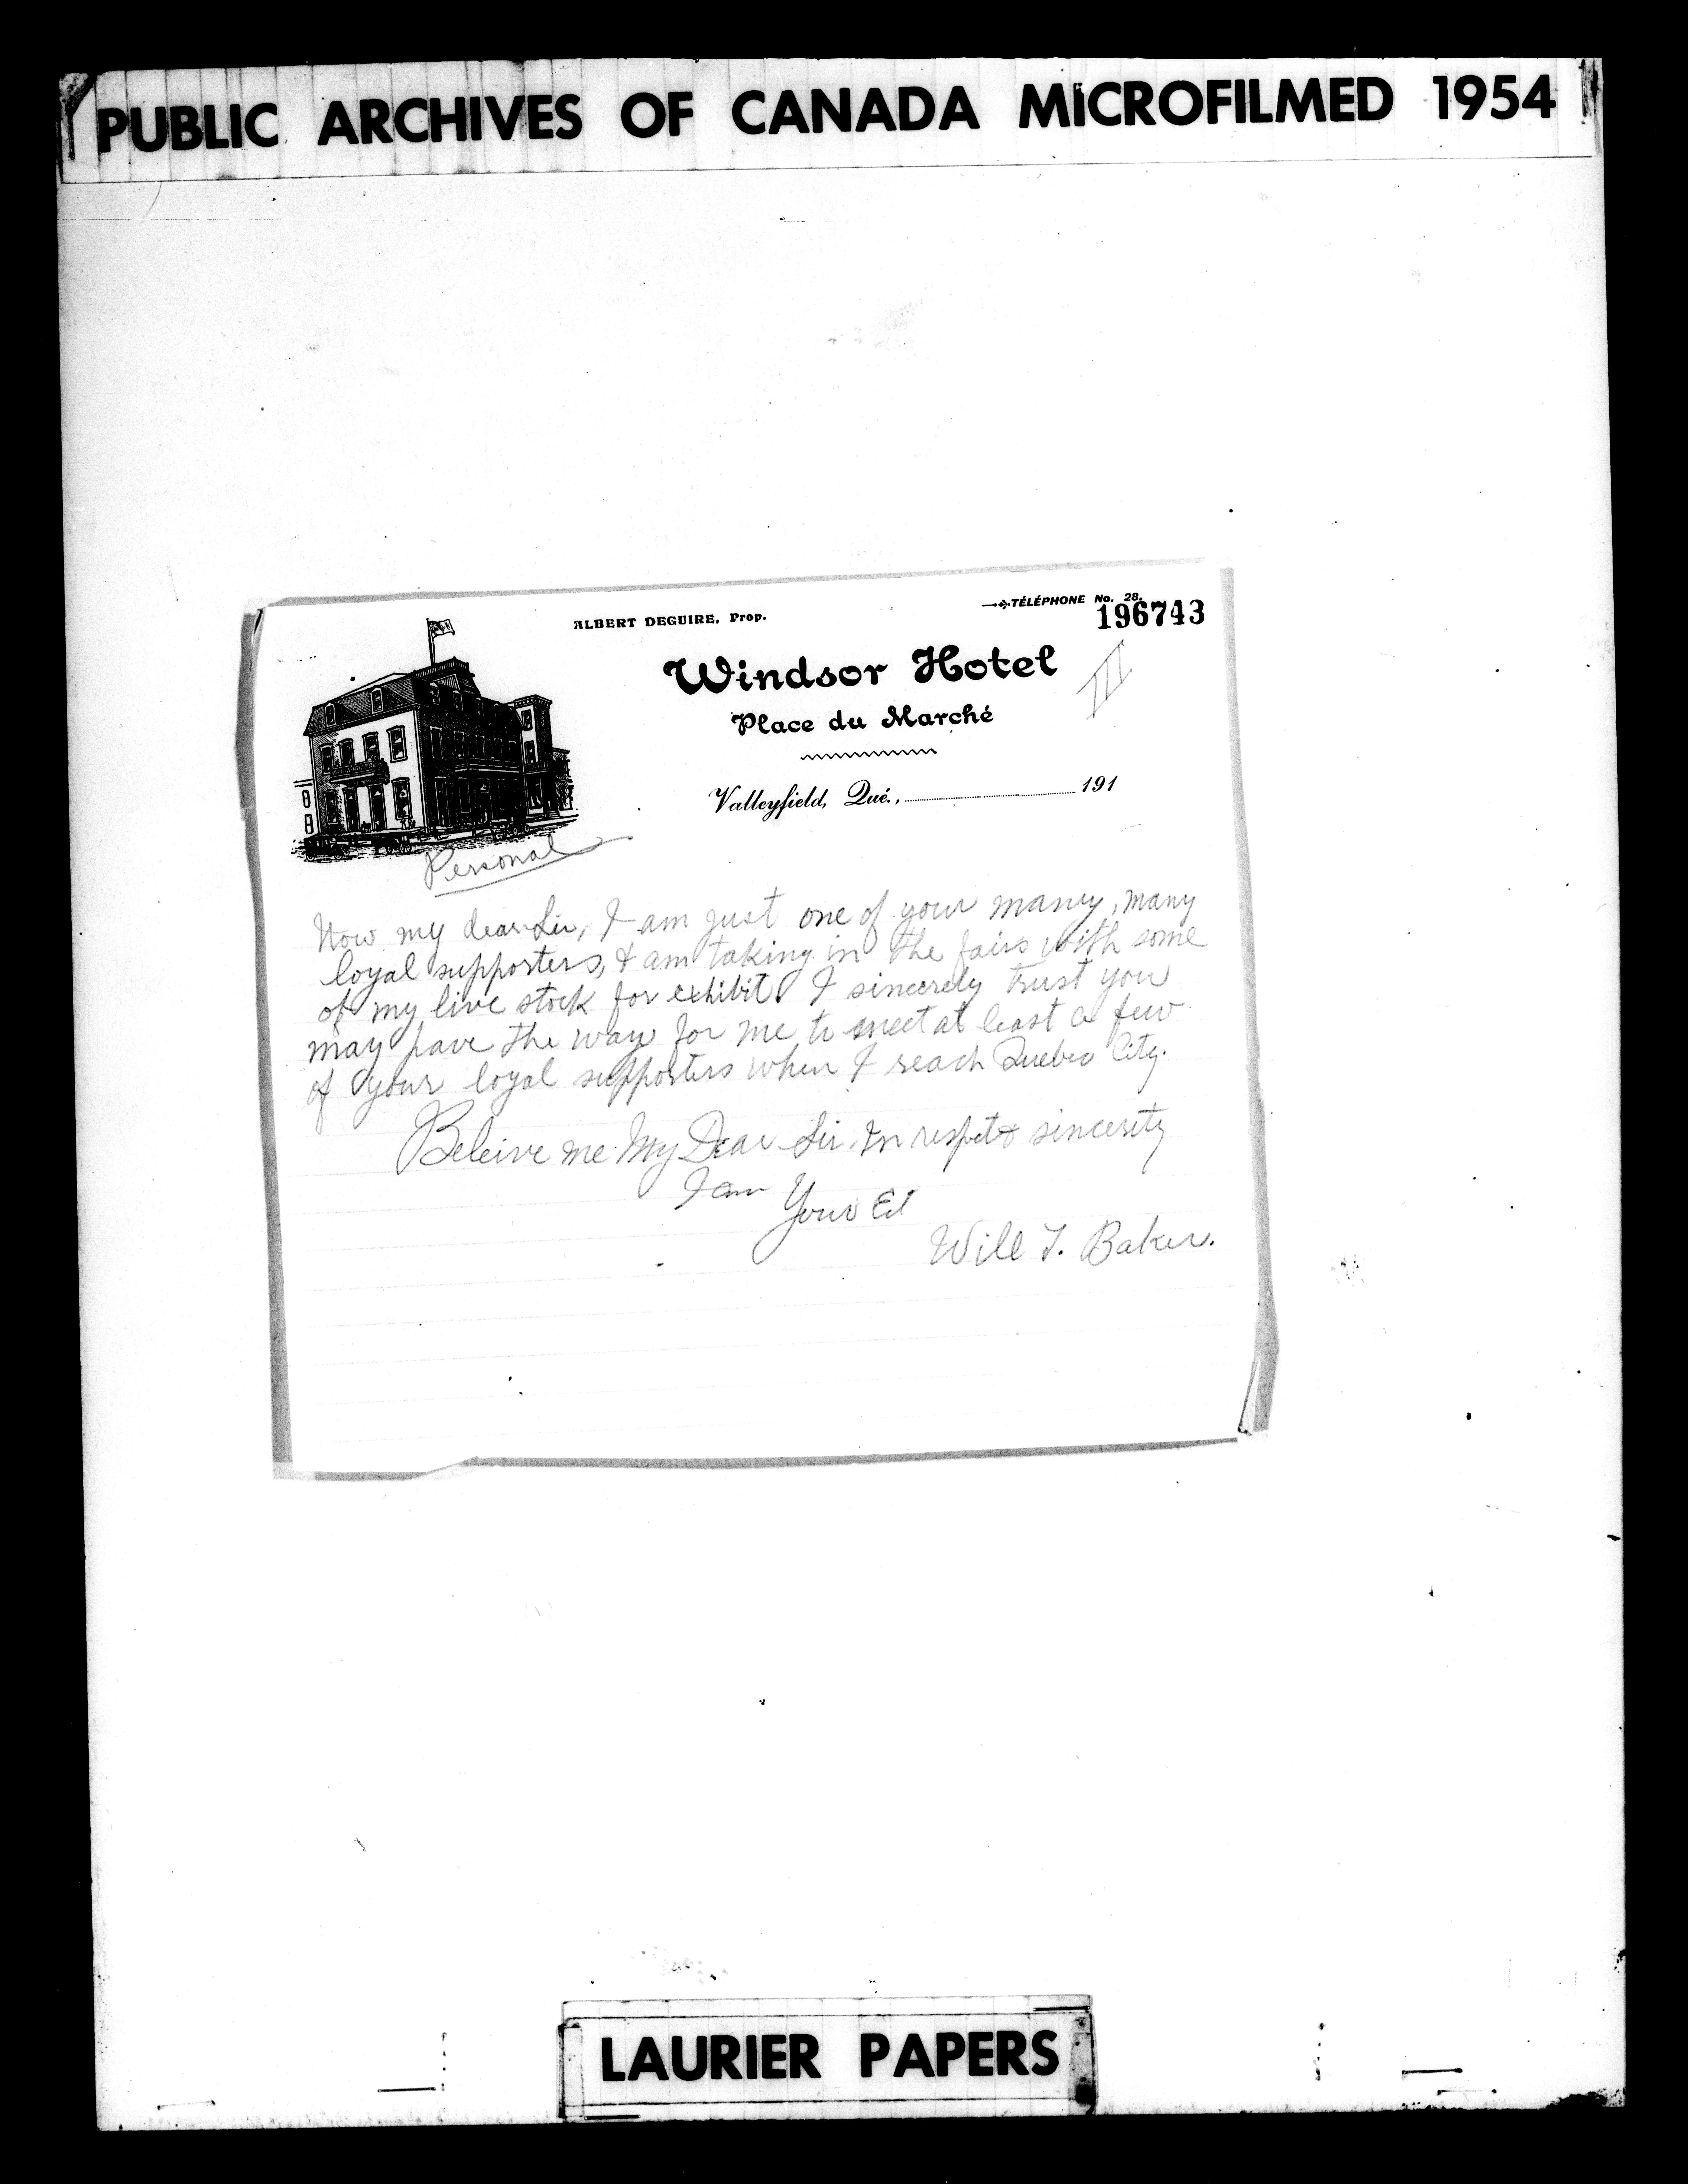 PUBLIC ARCHIVES OF CANADA MICROFILMED 1954
ALBERT DEGUIRE, Prop.
TÉLÉPHONE No. 28.
196743
Windsor Hotel
III
Place du Marché
Valleyfield, Qué., 191
Personal
Now my dear Sir, I am just one of your many, many
loyal supporters, & am taking in the fairs with some
of my live stock for exhibit. I sincerely trust you
may pave the way for me to meet at least a few
of your loyal supporters when I reach Quebec City.
Beleive me My Dear Sir, In respet & sincerity
I am
Your
Will T. Baker.
LAURIER PAPERS